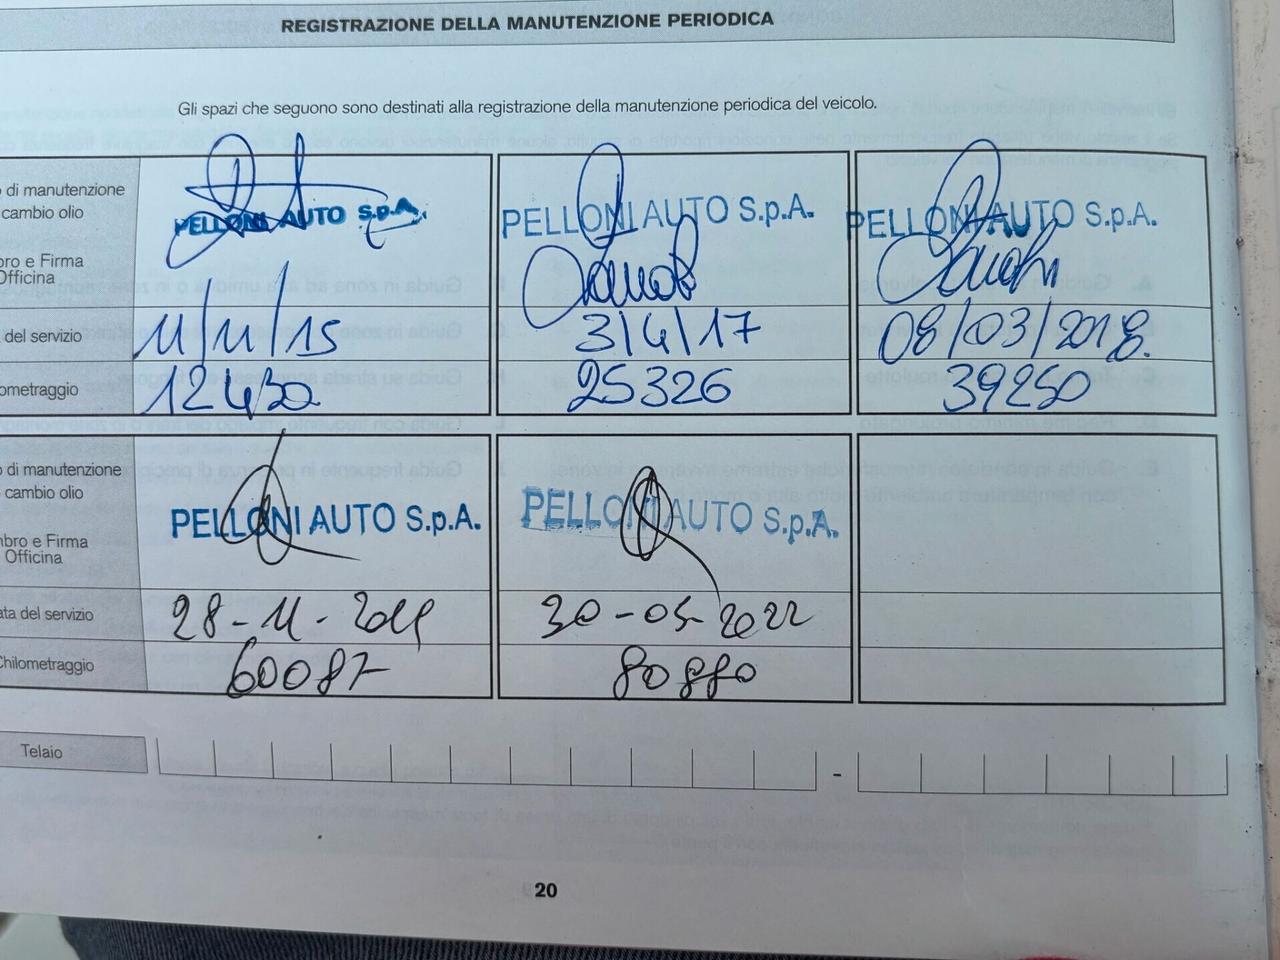 REGISTRAZIONE DELLA MANUTENZIONE PERIODICA
Gli spazi che seguono sono destinati alla registrazione della manutenzione periodica del veicolo.
di manutenzione
cambio olio
PELLONI AUTO S.p.A. PELLONI AUTO S.p.A. PELLONI AUTO S.p.A.
bro e Firma
Officina
del servizio 11/11/15 3/4/17 08/03/2018.
ometraggio 12430 25326 39250
di manutenzione
cambio olio
PELLONI AUTO S.p.A. PELLONI AUTO S.p.A.
bro e Firma
Officina
ata del servizio 28-11-2019 30-05-2022
Chilometraggio 60087 80880
Telaio -
20